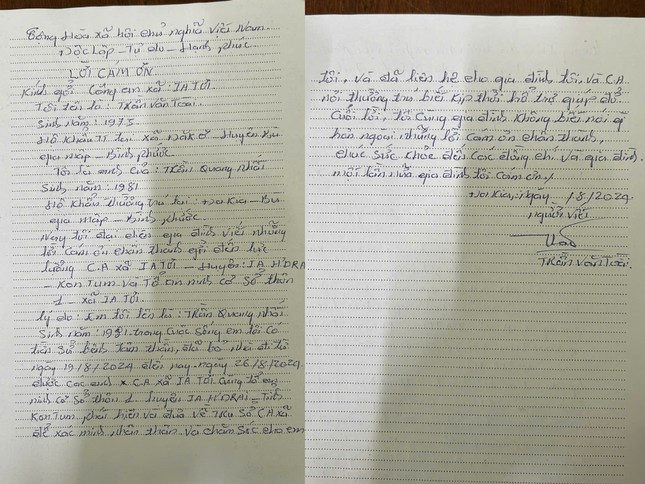 Cộng Hòa xã hội chủ nghĩa Việt Nam.
Độc Lập - Tự do - Hạnh phúc.
LỜI CÁM ƠN
Kính gởi Công an xã: IA TƠI.
Tôi tên là: Trần Văn Toài.
Sinh năm: 1975
Hộ khẩu TT tại xã Đăk Ơ - Huyện Bù
gia mập - Bình phước.
Tôi là anh của: Trần Quang Nhất
Sinh năm: 1981
Hộ khẩu thường trú tại: Đa Kia - Bù
gia mập - Bình phước.
Nay tôi đại diện gia đình viết những
lời cám ơn chân thành gởi đến lực
lượng C.A xã IA TƠI - Huyện: IA H'DRAI
- Kon Tum và Tổ an ninh cơ sở thôn
1 - xã IA TƠI.
Lý do: Em tôi tên là: Trần Quang Nhất
Sinh năm: 1981. trong cuộc sống em tôi có
tiền sử bệnh tâm thần, đã bỏ nhà đi từ
ngày 19/8/2024 đến nay ngày 26/8/2024
được các anh C.A xã IA TƠI cùng tổ an
ninh cơ sở thôn 1 huyện IA H'DRAI - Tỉnh
Kon Tum, phát hiện và đưa về Trụ sở C.A xã
để xác minh nhân thân và chăm sóc cho em
tôi, và đã liên hệ cho gia đình tôi, và C.A
nơi thường trú biết kịp thời hổ trợ giúp đở.
Cuối lời, tôi cùng gia đình không biết nói gì
hơn ngoài những lời cám ơn chân thành,
chúc sức khỏe đến các đồng chí và gia đình.
một lần nữa gia đình tôi cám ơn./
Đa Kia, ngày /8/2024
Người viết
Trần Văn Toài.